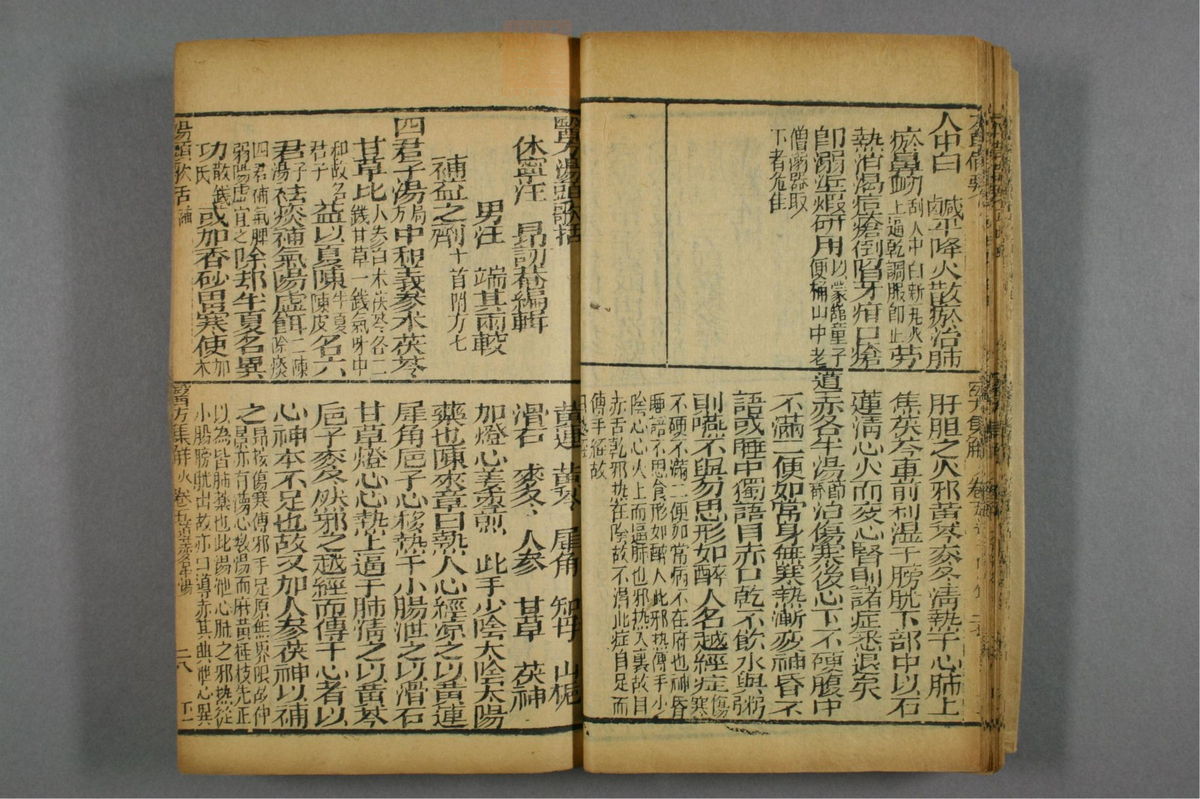 本草備要
人中白 鹹平降火散瘀治肺
瘀鼻衄刮人中白新瓦火
上逼乾調服即止勞
熱消渴痘瘡倒陷牙疳口瘡
即溺垽煆研用以蒙館童子
便桶山中老
僧溺器取
下者尤佳
醫方集解 卷
肝胆之火邪黃芩麥冬清熱于心肺上
焦茯苓車前利溼于膀胱下部中以石
蓮清心火而交心腎則諸症悉退矣
導赤各半湯節菴治傷寒後心下不硬腹中
不滿二便如常身無寒熱漸變神昏不
語或睡中獨語目赤口乾不飲水與粥
則嚥不與勿思形如醉人名越經症傷寒
不硬不滿二便如常病不在府也神昏
睡語不思食形如醉人此邪热傳手少
陰心心火上而逼肺也邪热入裏故目
赤舌乾邪热在陰故不渴此症自足而
傳手經故
曰越經
醫方湯頭歌括
休寧汪 昂訒菴編輯
男汪 端其兩較
補益之劑十首附方七
四君子湯局方中和義參朮茯苓
甘草比人參白朮茯苓各二
錢甘草一錢氣味中
和故名
君子益以夏陳半夏
陳皮名六
君子湯祛痰補氣陽虛餌二陳
除痰
四君補氣脾
弱陽虛宜之除却半夏名異
功錢氏
散或加香砂胃寒使加木
湯頭歌括
黃連 黃芩 犀角 知母 山梔
滑石 麥冬 人参 甘草 茯神
加燈心姜棗煎 此手少陰太陰太陽
藥也陳來章曰熱入心經凉之以黃連
犀角梔子心移熱于小腸泄之以滑石
甘草燈心心熱上逼于肺清之以黃芩
梔子麥冬然邪之越經而傳于心者以
心神本不足也故又加人参茯神以補
之昂按傷寒傳邪手足原無界限故仲
景亦有瀉心製湯而麻黃桂枝先正
以為皆肺藥也此湯他心臟之邪热從
小腸膀胱出故亦曰導赤其曲瀉心異
醫方集解 火 卷五 導赤各半湯